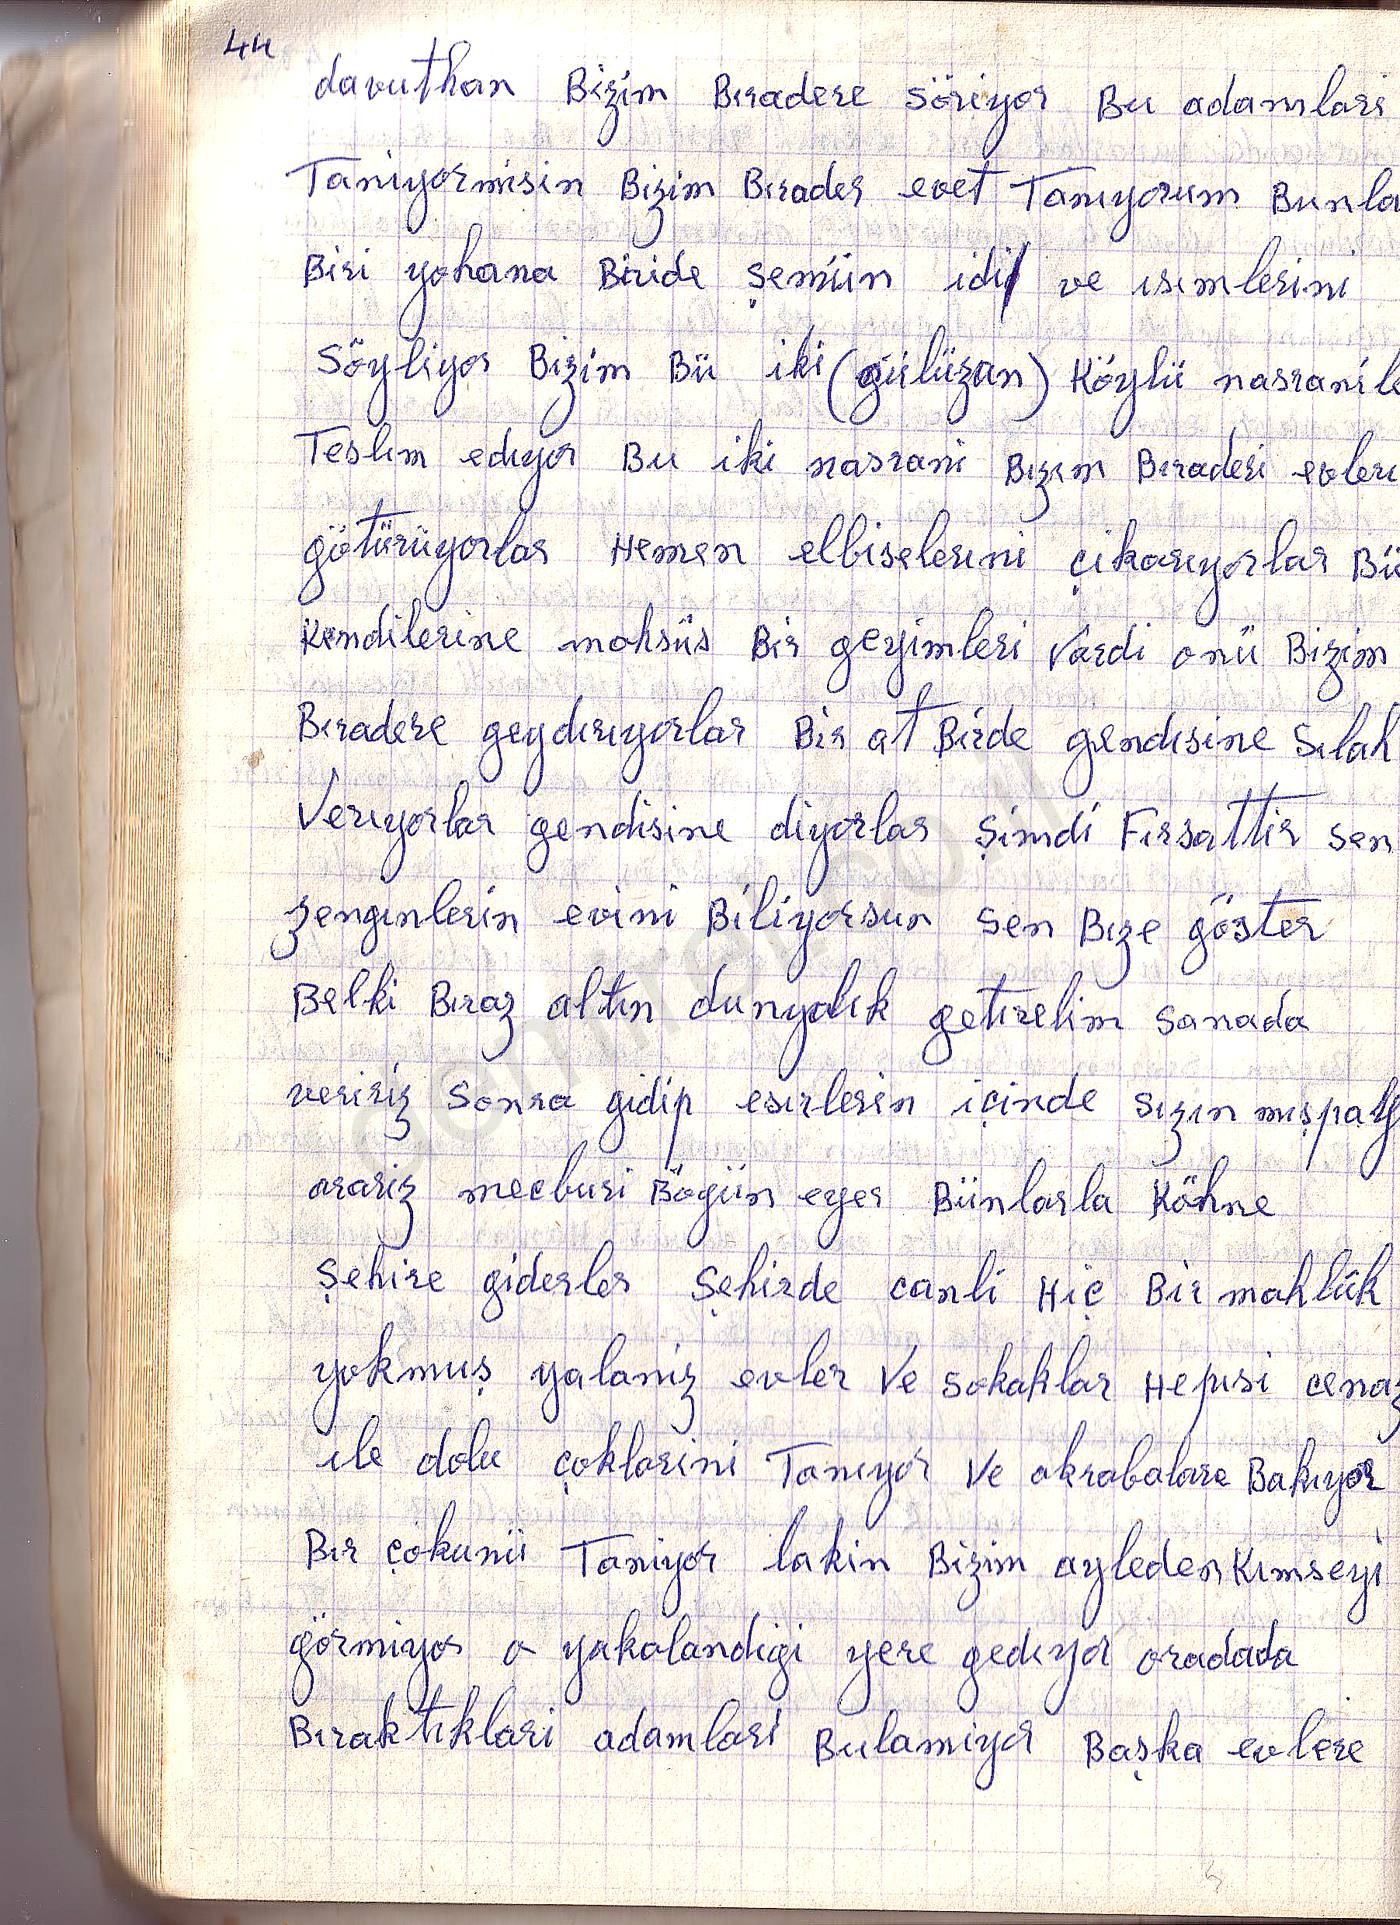 44
davuthan Bizim Bıradere Söriyor Bu adamlari
Taniyormisin Bizim Bırader evet Tanıyorum Bunla
Biri yohana Biride şemün idi ve ısımlerini
Söyliyor Bizim Bü iki (gülüzan) Köylü nasranile
Teslım edıyor Bu iki nasrani Bızım Bıraderi evlerı
götürüyorlar Hemen elbiselerıni çikarıyorlar Bü
Kendilerine mahsüs Bir geyimleri vardi onü Bizim
Bıradere geydırıyorlar Bir at Birde gendısine Sılah
Verıyorlar gendisine diyorlar Şimdi Fırsattir sen
zengınlerin evini Biliyorsun sen Bıze göster
Belki Bıraz altın dunyalık getırelim sanada
veririz Sonra gidip esırlerin içinde sızın mışpaty
arariz mecburi Bögün eyer Bünlarla Köhne
Şehire giderler Şehirde canli Hiç Bir mahlük
yokmuş yalaniz evler ve sokaklar Hepısi cenaz
ıle dolu çoklarini Tanıyor ve akrabalare Bakıyor
Bır çökunü Taniyor lakin Bizim ayleden Kımseyi
görmiyor o yakalandigi yere gedıyor oradada
Bıraktıklari adamlari Bulamiyor Başka evlere
demirel.co.il